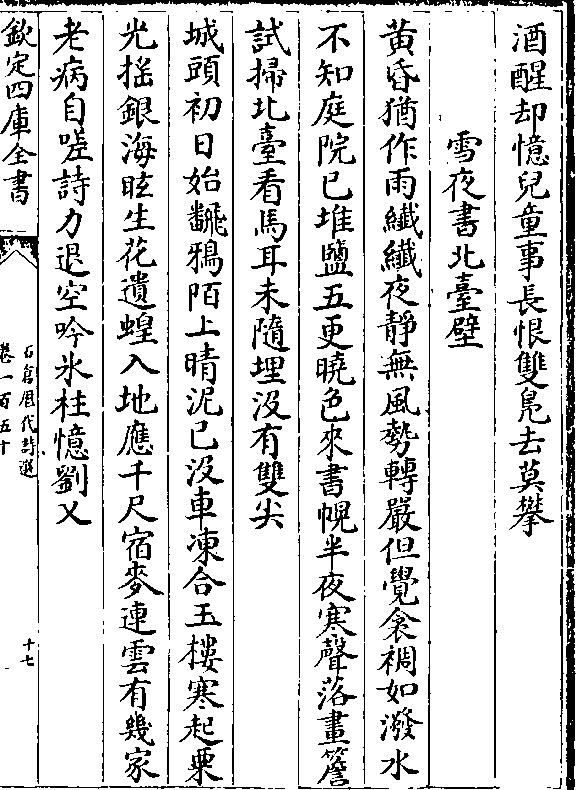 酒醒却憶兒童事長恨雙鳬去莫攀
雪夜書北臺壁
黄昏猶作雨纎纎夜靜無風勢轉嚴但覺衾裯如潑水
不知庭院已堆鹽五更曉色來書幌半夜寒聲落畫簷
試掃北臺看馬耳未隨埋沒有雙尖
城頭初日始翻鴉陌上晴泥已沒車凍合玉樓寒起粟
光揺銀海眩生花遺蝗入地應千尺宿麥連雲有幾家
老病自嗟詩力退空吟氷柱憶劉叉
欽定四庫全書
石倉歴代詩選
卷一百五十
十七